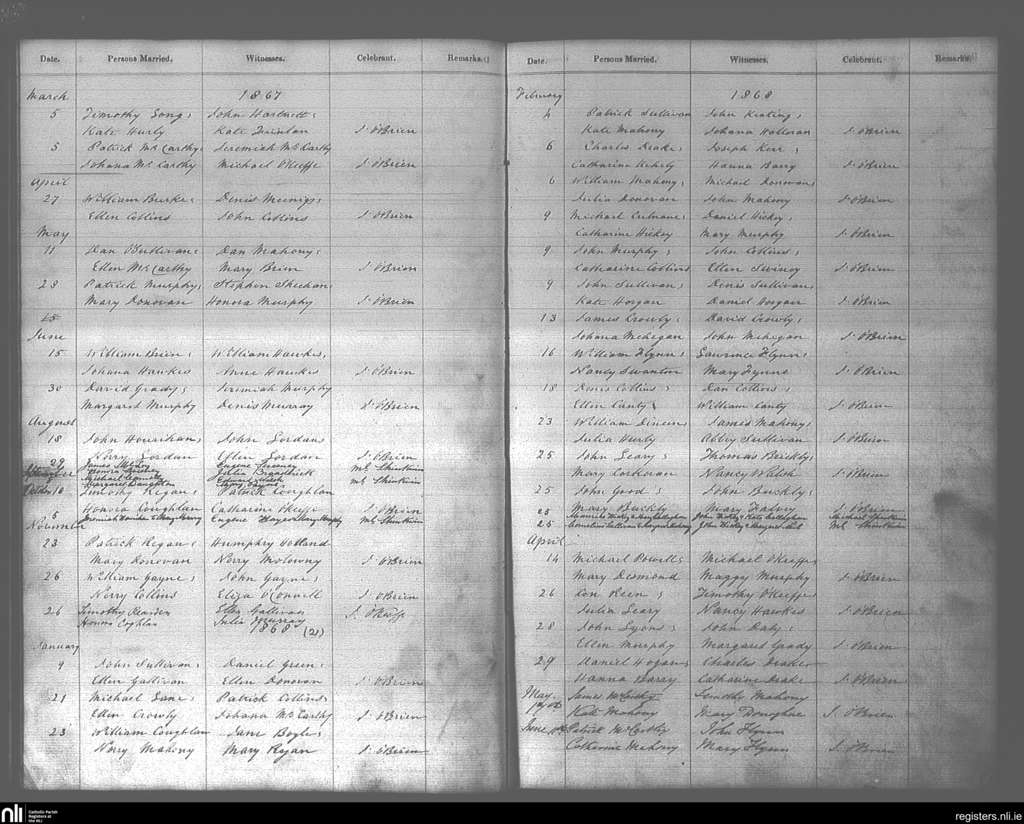 Date. Persons Married. Witnesses. Celebrant. Remarks.
March 1867
5 Timothy Long: John Hartnett:
Kate Hurly Kate Quinlan J. O'Brien
5 Patrick McCarthy: Jeremiah McCarthy
Johana McCarthy Michael O'Keeffe J. O'Brien
April
27 William Burke: Denis
Ellen Collins John Collins J. O'Brien
May
11 Dan O'Sullivan: Dan Mahony:
Ellen McCarthy Mary Brien J. O'Brien
28 Patrick Murphy: Stephen Sheehan:
Mary Donovan Honora Murphy J. O'Brien
June
15 William Brien: William Hawkes,
Johana Hawkes Anne Hawkes J. O'Brien
30 David Grady: Jeremiah Murphy
Margaret Murphy Denis Murray J. O'Brien
August
18 John Hourihan: John Jordan:
Norry Jordan Ellen Jordan J. O'Brien
29
September
October 10 Timothy Regan: Patrick Coughlan
Honora Coughlan Catharine O'Keeffe J. O'Brien
5 Eugene
November
23 Patrick Regan: Humphry Holland
Mary Donovan Norry Molowny J. O'Brien
26 William Gayne: John Gayne:
Norry Collins Eliza O'Connell J. O'Brien
26 Timothy Riordan Ellen Gallivan J. O'Keeffe
Honora Coghlan Julia Murray
1868 (21)
January
9 John Sullivan: Daniel Green:
Ellen Gallivan Ellen Donovan J. O'Brien
21 Michael Lane: Patrick Collins:
Ellen Crowly Johana McCarthy J. O'Brien
23 William Coughlan Sam Boyle:
Norry Mahony Mary Regan J. O'Brien
Date. Persons Married. Witnesses. Celebrant. Remarks.
February 1868
4 Patrick Sullivan John Keating:
Kate Mahony Johana Halloran J. O'Brien
6 Charles Drake: Joseph Kerr:
Catharine Hanna Barry J. O'Brien
6 William Mahony: Michael Donovan:
Julia Donovan John Mahony J. O'Brien
9 Michael Culnane: Daniel Hickey:
Catharine Hickey Mary Murphy J. O'Brien
9 John Murphy: John Collins:
Catharine Collins Ellen Swiney J. O'Brien
9 John Sullivan: Denis Sullivan:
Kate Horgan Daniel Horgan J. O'Brien
13 James Crowly: David Crowly:
Johana Mehegan John Mehegan J. O'Brien
16 William Flynn: Laurence Flynn:
Nancy Swanton Mary Flynne J. O'Brien
18 Denis Collins: Dan Collins:
Ellen Canty William Canty J. O'Brien
23 William Dineen: James Mahony:
Julia Hurly Abbey Sullivan J. O'Brien
25 John Leary: Thomas Brickly:
Mary Corkoran Nancy Walsh J. O'Brien
25 John Good: John Buckly:
Mary Buckly Mary J. O'Brien
25
25 Cornelius
April
14 Michael Powell: Michael O'Keeffe
Mary Desmond Maggy Murphy J. O'Brien
26 Con Keen: Timothy O'Keeffe:
Julia Leary Nancy Hawkes J. O'Brien
28 John Lyons: John Daly:
Ellen Murphy Margaret Grady J. O'Brien
29 Daniel Hogan: Charles Drake
Hanna Barry Catharine Drake J. O'Brien
May James McCarthy Timothy Mahony
Kate Mahony Mary Donoghue J. O'Brien
June Patrick McCarthy John Flynn
Catherine Mahony Mary Flynn J. O'Brien
nli Catholic Parish Registers at the NLI
registers.nli.ie